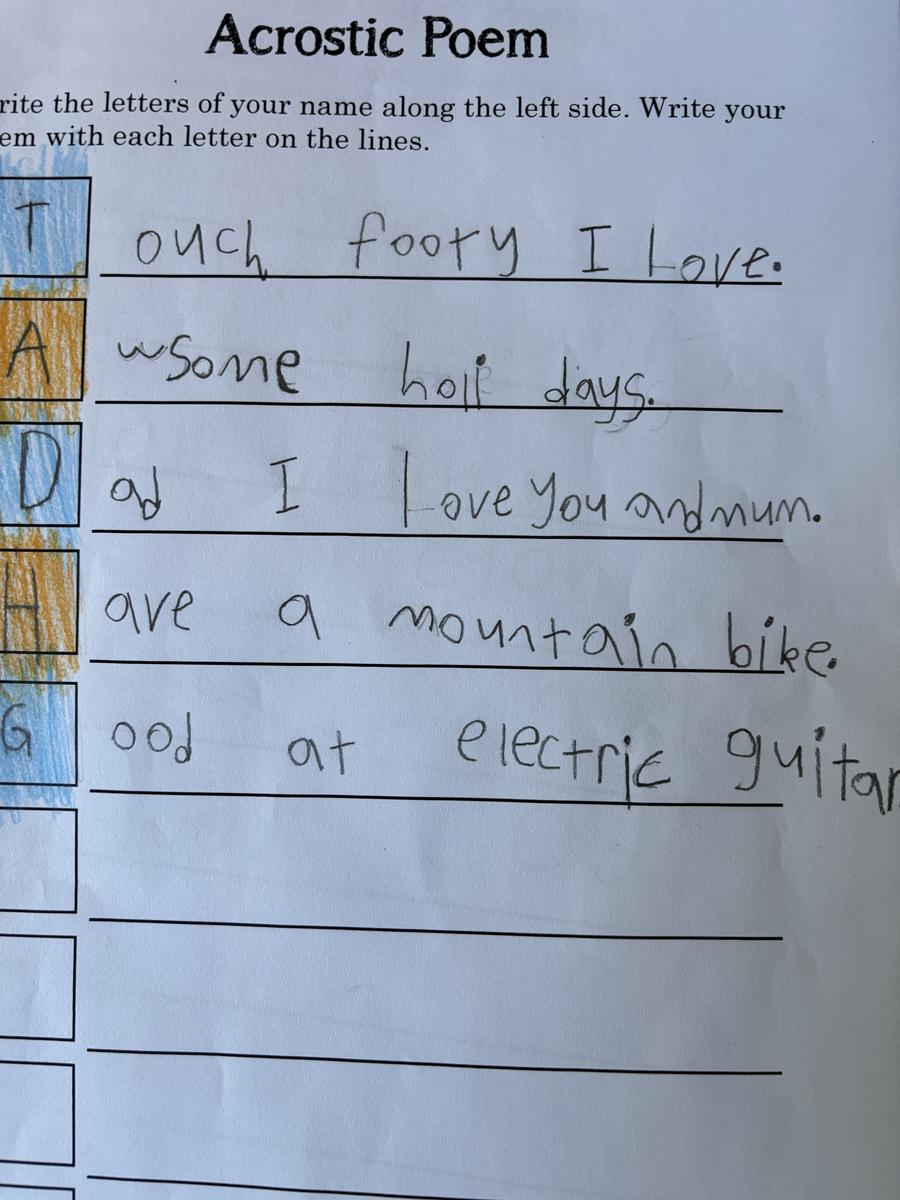 Acrostic Poem
rite the letters of your name along the left side. Write your
em with each letter on the lines.
T ouch footy I Love.
A wsome holi days.
D ad I Love you and mum.
H ave a mountain bike.
G ood at electric guitar